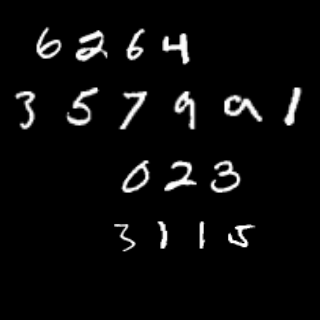 6264
357991
023
3115